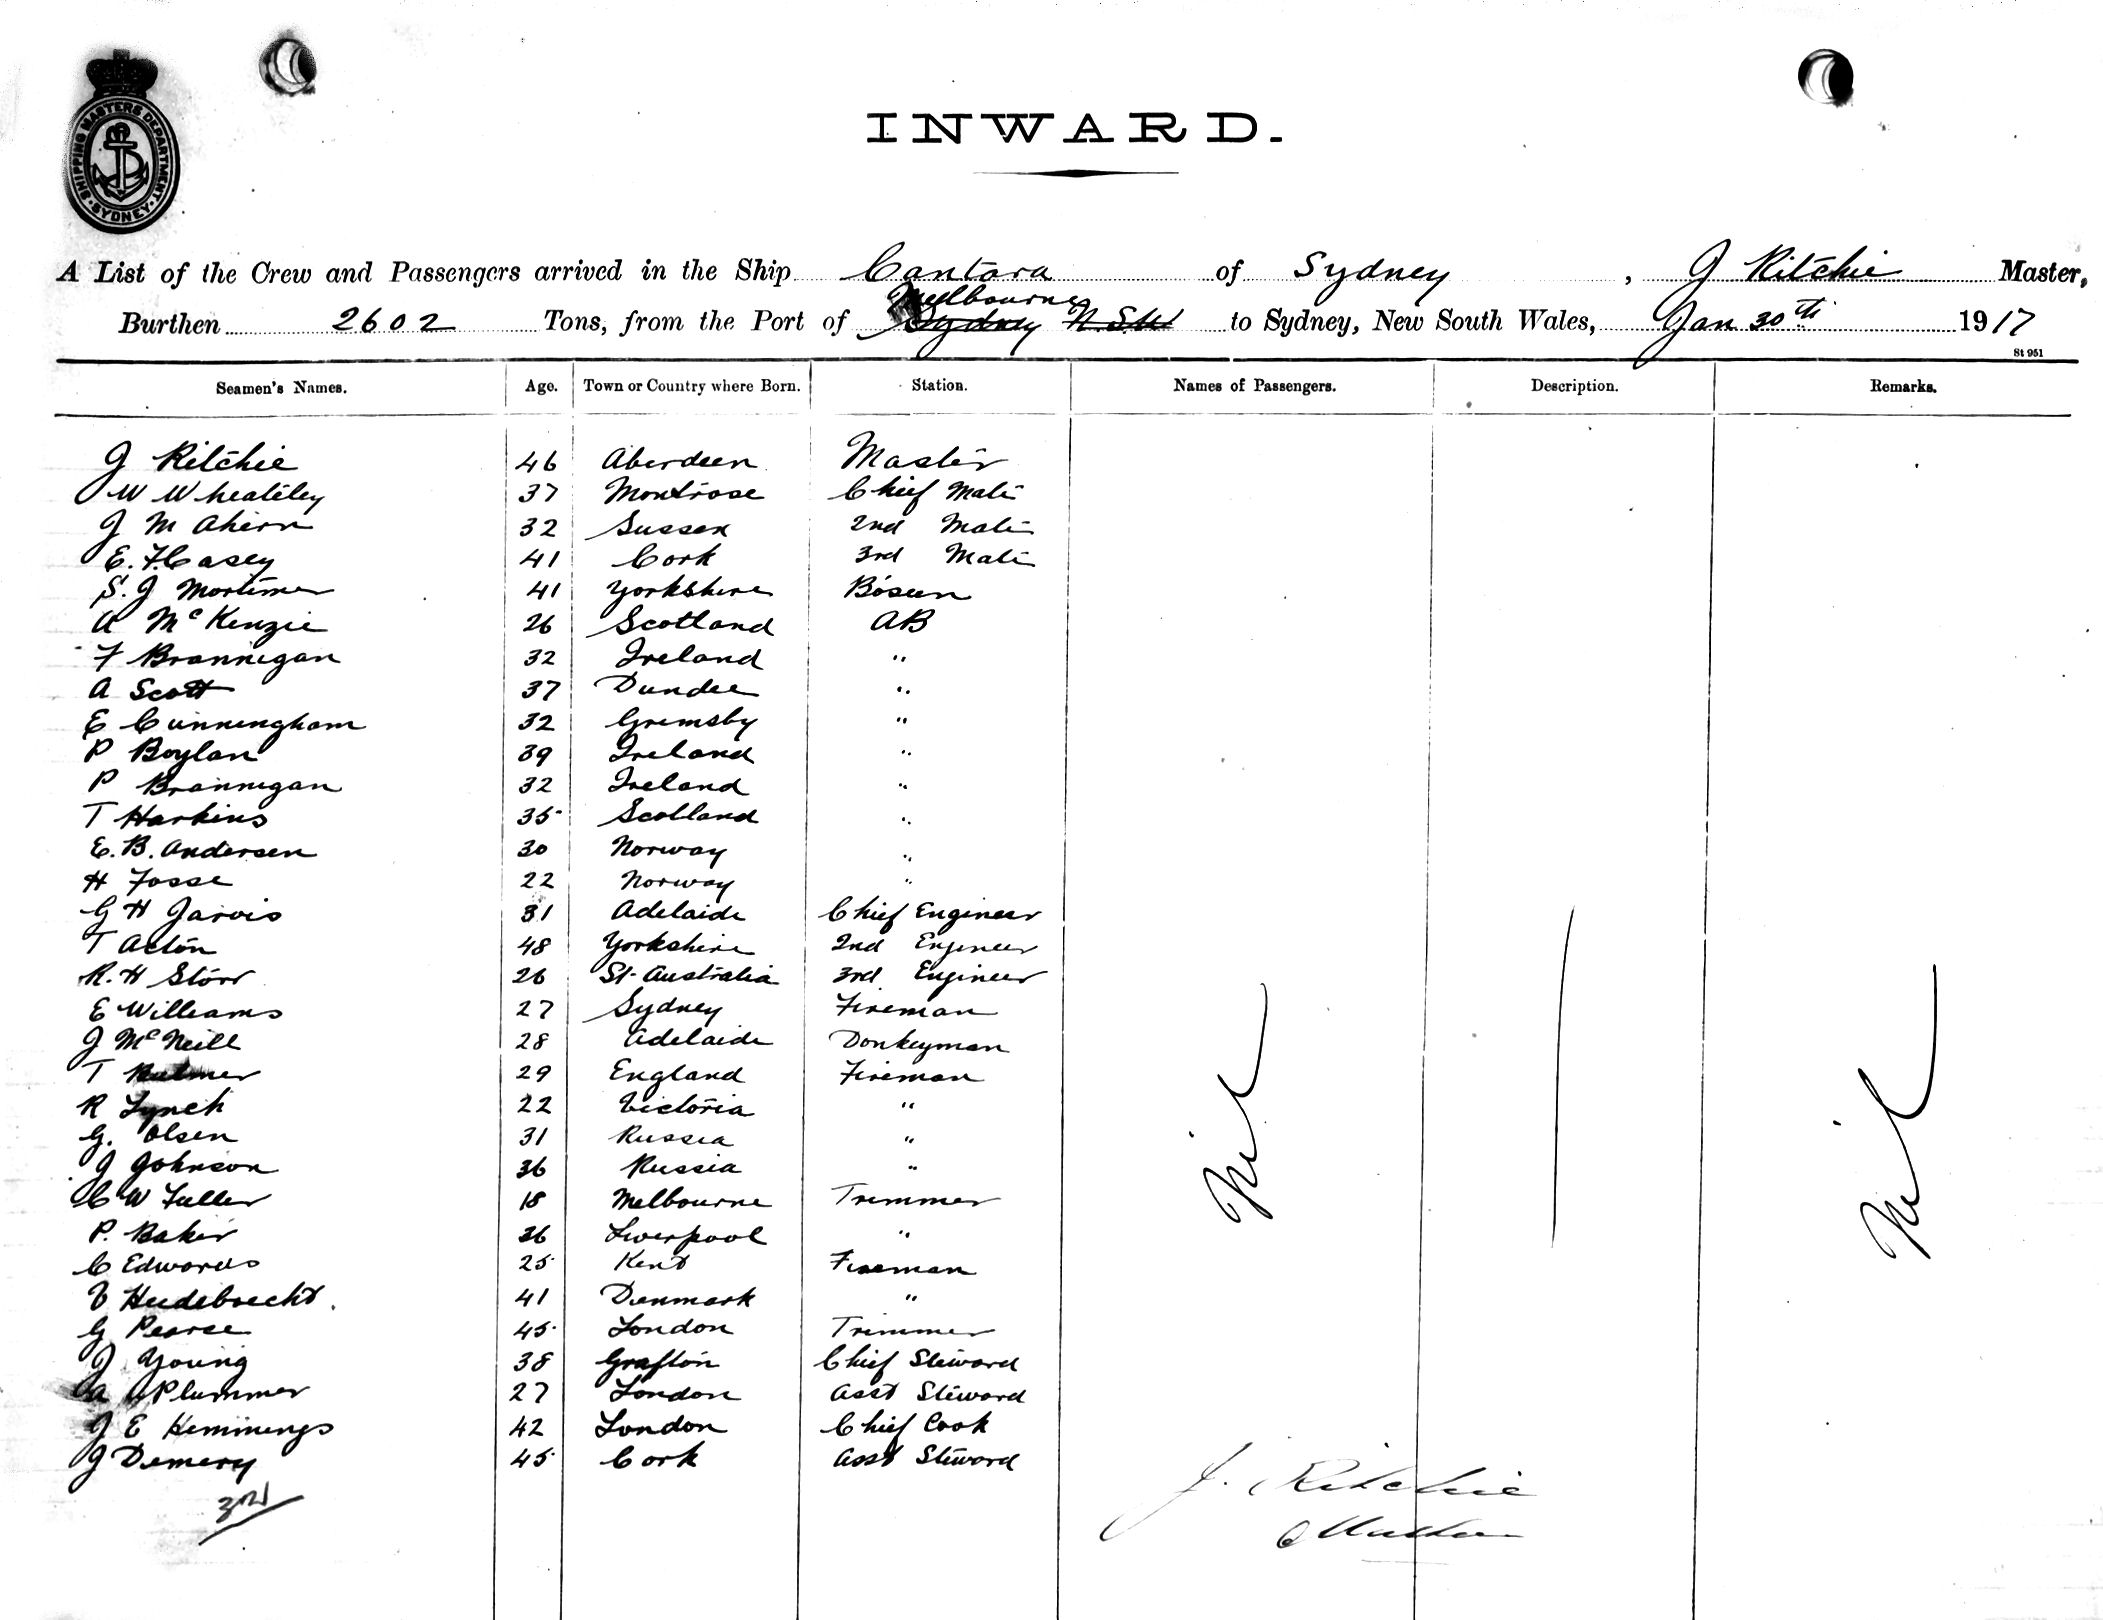 SHIPPING MASTERS DEPARTMENT
SYDNEY
INWARD.
A List of the Crew and Passengers arrived in the Ship Cantara of Sydney, J Ritchie Master,
Burthen 2602 Tons, from the Port of Melbourne Sydney N.S.W to Sydney, New South Wales, Jan 30th 1917
St 951
Seamen's Names. Age. Town or Country where Born. Station. Names of Passengers. Description. Remarks.
J Ritchie 46 Aberdeen Master
W Wheatley 37 Montrose Chief Mate
J M Ahern 32 Sussex 2nd Mate
E. F. Casey 41 Cork 3rd Mate
S. J Mortimer 41 Yorkshire Bosun
A McKenzie 26 Scotland AB
F Brannigan 32 Ireland "
A Scott 37 Dundee "
E Cunningham 32 Grimsby "
P Boylan 39 Ireland "
P Brannigan 32 Ireland "
T Harkins 35 Scotland "
E. B. Andersen 30 Norway "
H Fosse 22 Norway "
G H Jarvis 31 Adelaide Chief Engineer
T Acton 48 Yorkshire 2nd Engineer
R. H Storr 26 Sth Australia 3rd Engineer
E Williams 27 Sydney Fireman
J McNeill 28 Adelaide Donkeyman
T 29 England Fireman
R Lynch 22 Victoria "
G. Olsen 31 Russia "
J Johnson 36 Russia "
C W Fuller 18 Melbourne Trimmer
P. Baker 36 Liverpool "
C Edwards 25 Kent Fireman
V Heidebrecht. 41 Denmark "
G Pearse 45 London Trimmer
J Young 38 Grafton Chief Steward
A Plummer 27 London Asst Steward
J E Hemmings 42 London Chief Cook
J Demery 45 Cork Asst Steward
Nil Nil
J. Ritchie
Master